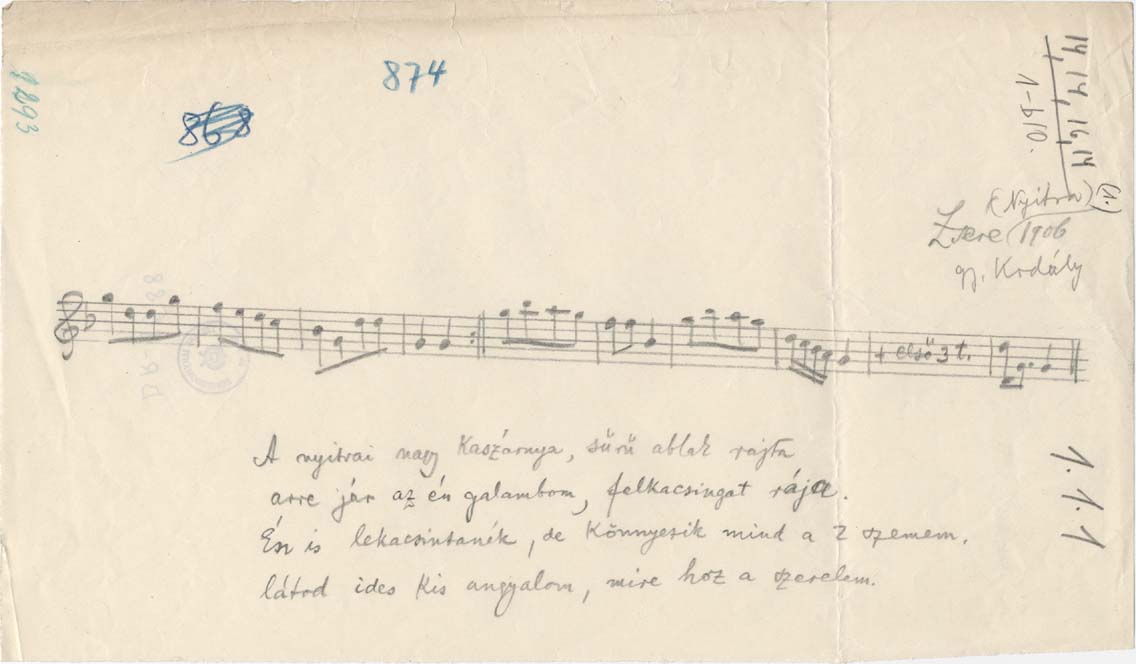 874
868
1293
14, 14, 16, 14
1-b10.
(1.)
(Nyitra)
Zsere 1906
gy. Kodály
DR-880
+ első 3 t.
A nyitrai nagy Kaszárnya, sűrű ablak rajta
arre jár az én galambom, felkacsingat rája.
Én is lekacsintanék, de Könnyezik mind a 2 szemem.
látod ides Kis angyalom, mire hoz a szerelem.
1.1.1